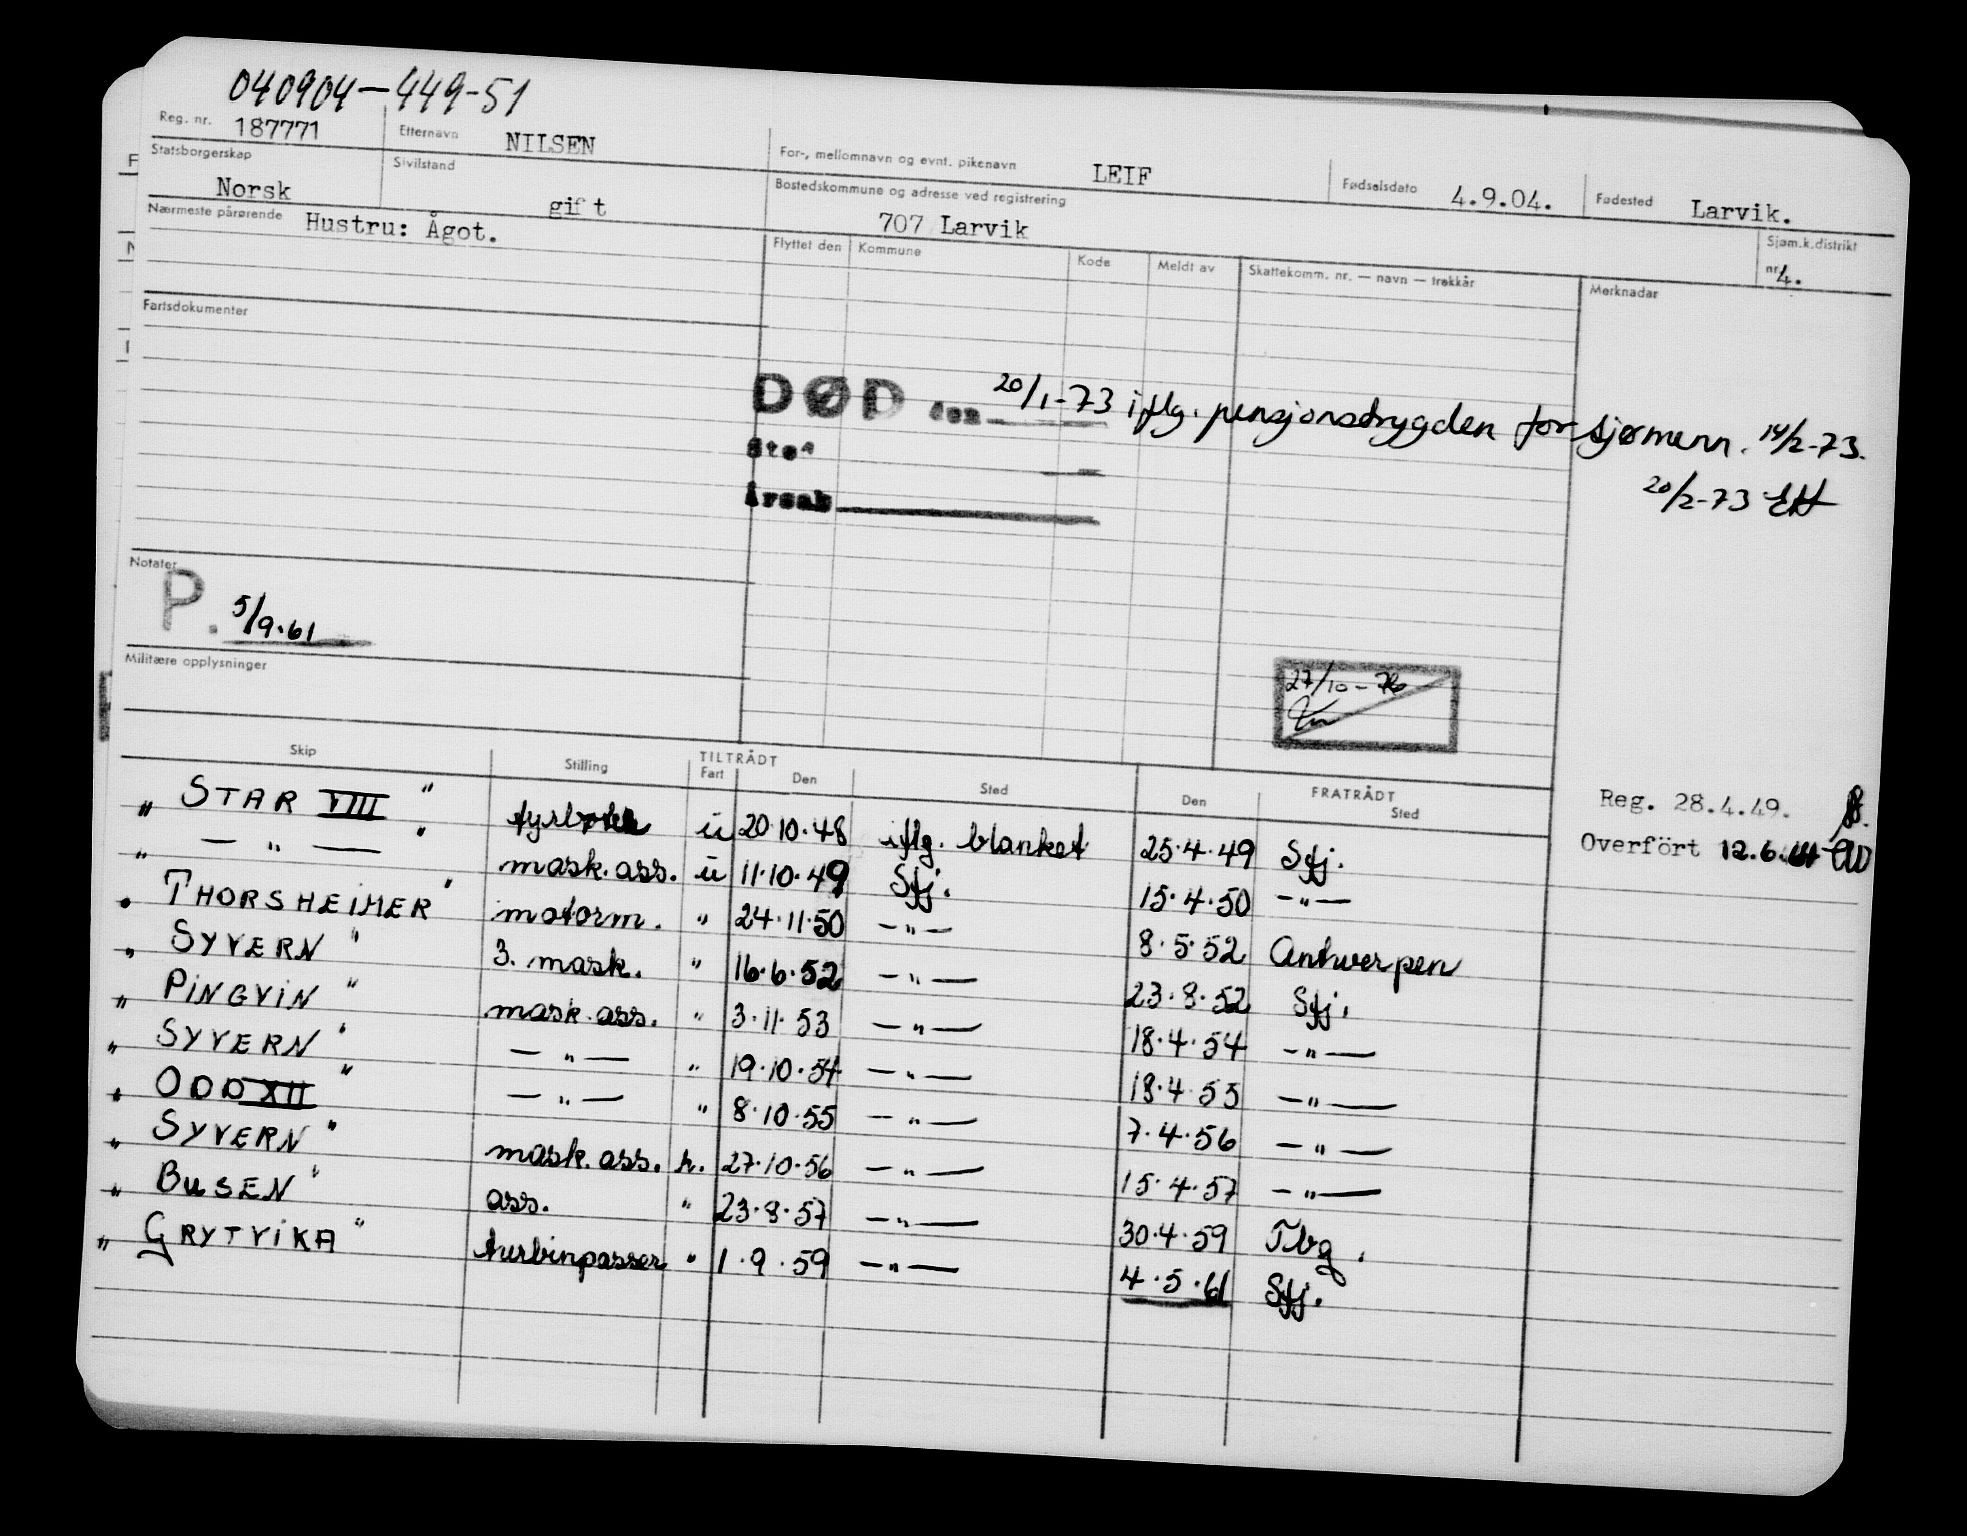 040904-449-51
Reg. nr. 187771 Etternavn NILSEN For-, mellomnavn og evnt. pikenavn LEIF Fødselsdato 4.9.04. Fødested Larvik.
Statsborgerskap Norsk Sivilstand gift Bostedskommune og adresse ved registrering 707 Larvik Sjøm.k.distrikt nr. 4.
Nærmeste pårørende Hustru: Ågot.
Flyttet den Kommune Kode Meldt av Skattekomm. nr. — navn — trekkår Merknader
Fartsdokumenter
DØD den 20/1-73 iflg. pensjonstrygden for sjømenn. 14/2-73.
Sted
20/2-73
Årsak
Notater
P. 5/9.61
Militære opplysninger
27/10-76
Skip Stilling TILTRÅDT Fart Den Sted FRATRÅDT Den Sted
Reg. 28.4.49.
Overfört 12.6.61
" STAR VIII " fyrbøter u 20.10.48 iflg. blanket 25.4.49 Sfj.
" — " — " mask. ass. u 11.10.49 Sfj. 15.4.50 — " —
" THORSHEIMER " motorm. " 24.11.50 — " — 8.5.52 Antwerpen
" SYVERN " 3. mask. " 16.6.52 — " — 23.8.52 Sfj.
" PINGVIN " mask. ass. " 3.11.53 — " — 18.4.54 — " —
" SYVERN " — " — " 19.10.54 — " — 18.4.55 — " —
" ODD XII " — " — " 8.10.55 — " — 7.4.56 — " —
" SYVERN " mask. ass. h. 27.10.56 — " — 15.4.57 — " —
" BUSEN " ass. " 23.8.57 — " — 30.4.59 Tbg.
" GRYTVIKA " turbinpasser " 1.9.59 — " — 4.5.61 Sfj.